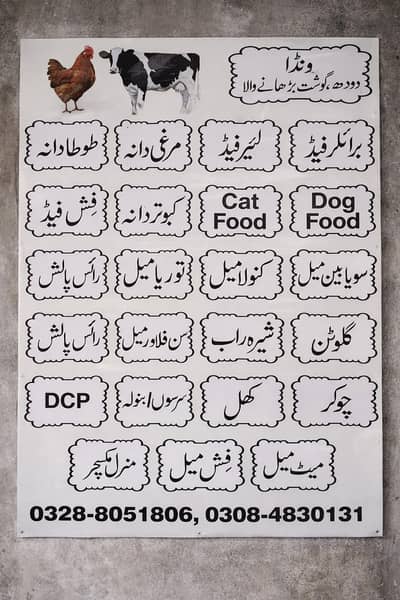 ونڈا
دودھ، گوشت بڑھانے والا
برائلر فیڈ
لئیر فیڈ
مرغی دانہ
طوطا دانہ
Dog
Food
Cat
Food
کبوتر دانہ
فِش فیڈ
سویا بین میل
کنولا میل
توریا میل
رائس پالش
گلوٹن
شیرہ راب
سن فلاور میل
رائس پالش
چوکر
کھل
سرسوں/بنولہ
DCP
میٹ میل
فِش میل
منرل مکسچر
0328-8051806, 0308-4830131